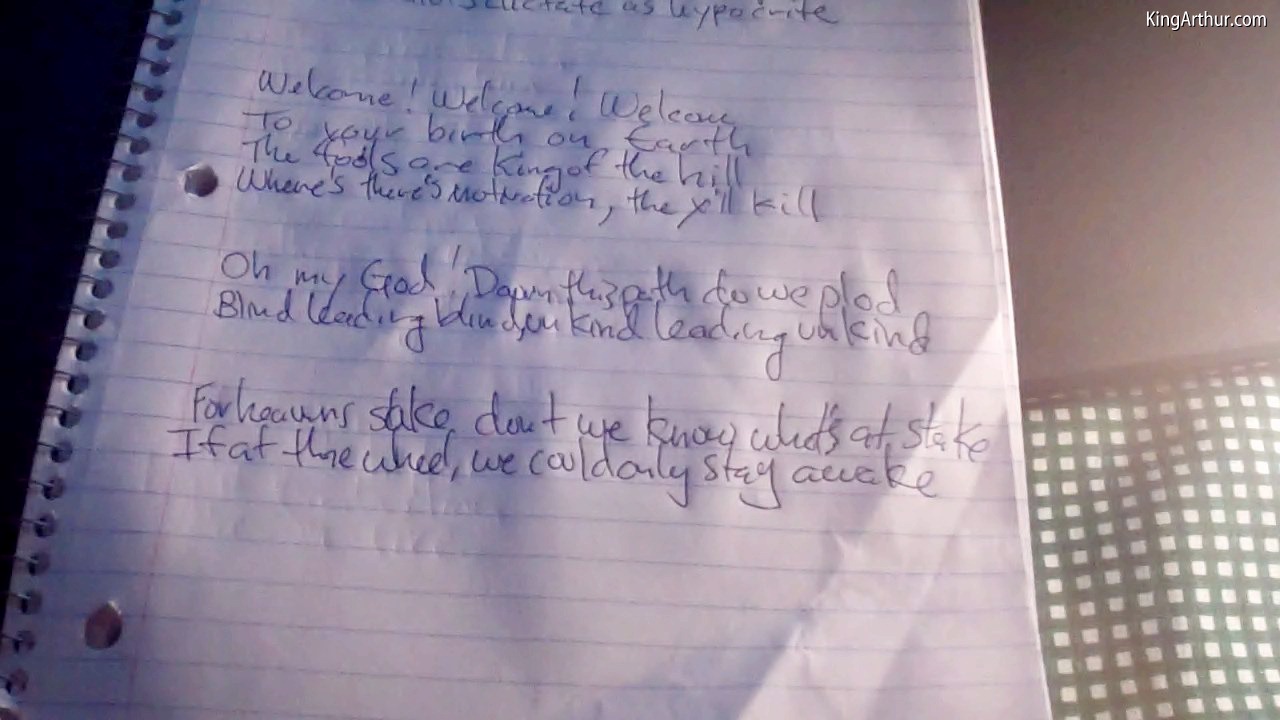 KingArthur.com
as hypocrite
Welcome! Welcome! Welcom
To your birth on Earth
The fools are King of the hill
Where's there's motivation, they'll kill
Oh my God! Down this path do we plod
Blind leading blind, unkind leading unkind
For heavens sake, don't we know what's at stake
If at the wheel, we could only stay awake